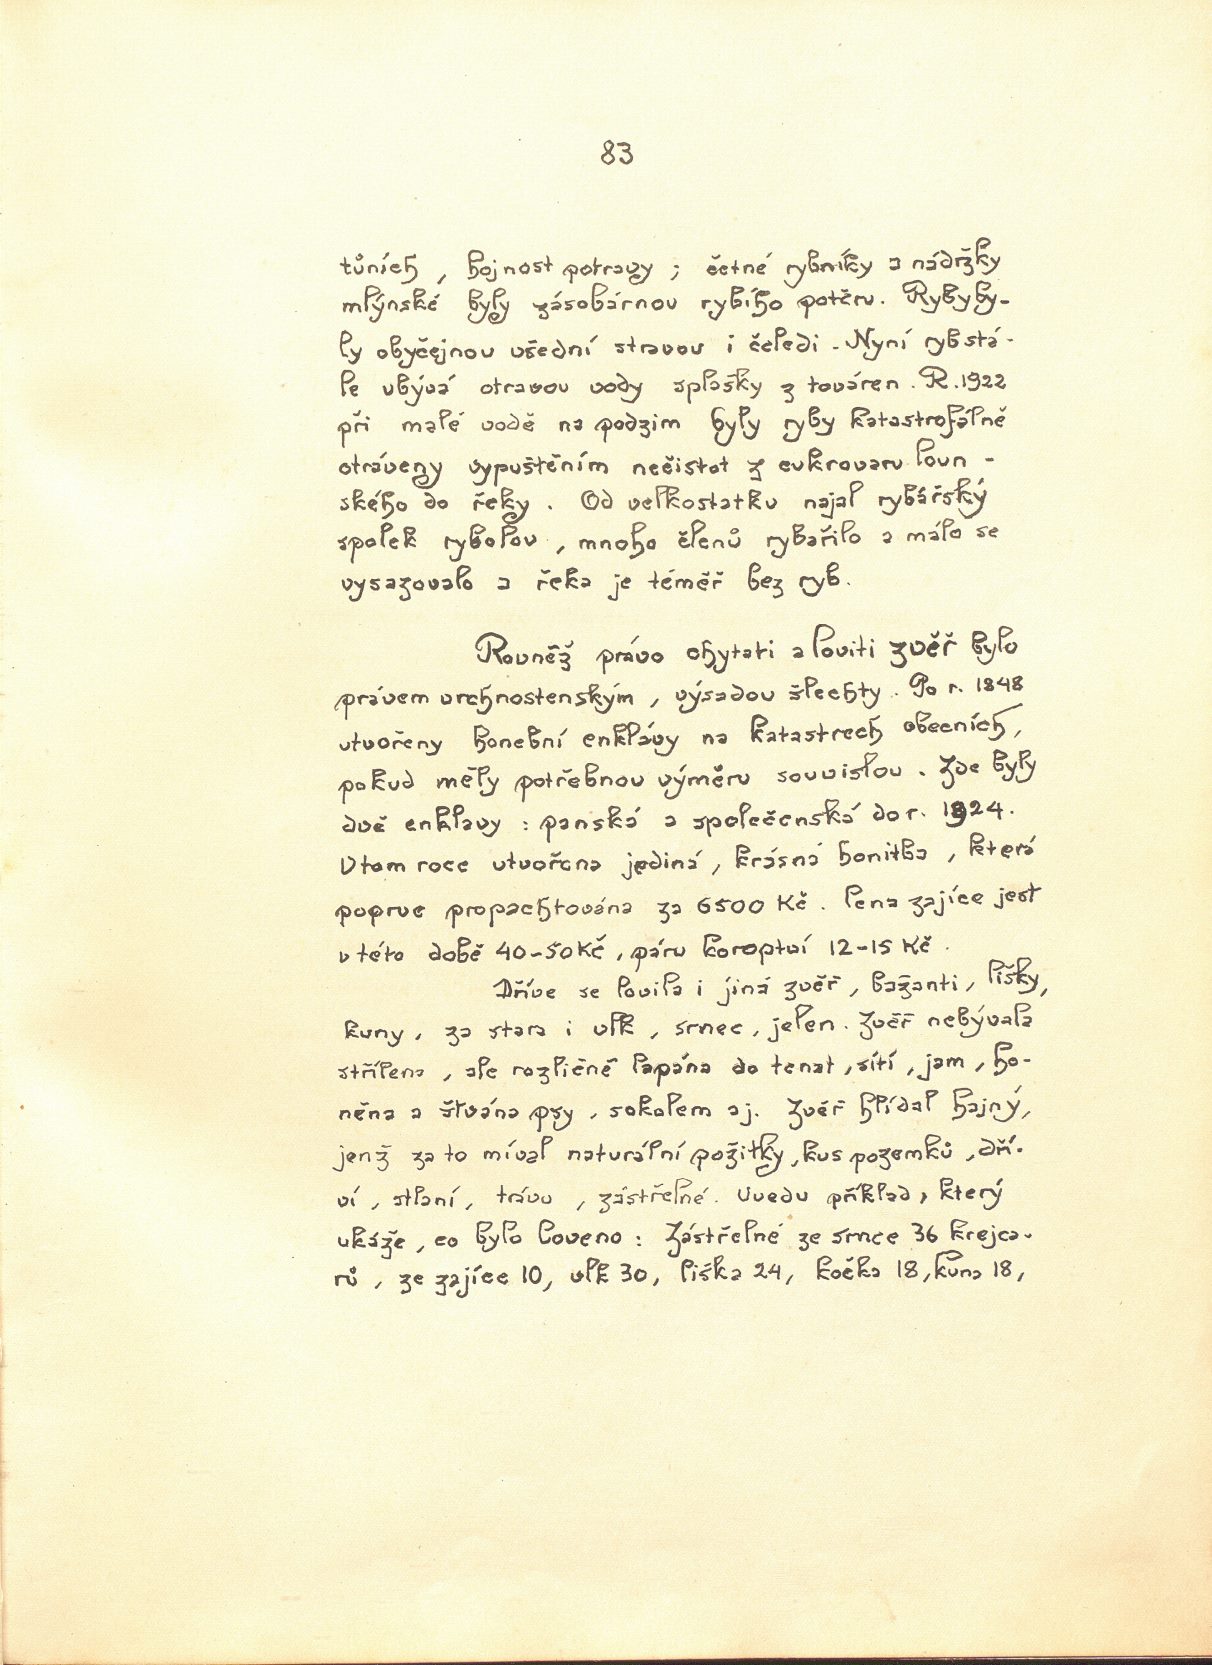 83
tůních, hojnost potravy; četné rybníky a nádržky
mlýnské byly zásobárnou rybího potěru. Ryby by-
ly obyčejnou všední stravou i čeledi. Nyní ryb stá-
le ubývá otravou vody splašky z továren. R. 1922
při malé vodě na podzim byly ryby katastrofálně
otráveny vypuštěním nečistot z cukrovaru loun-
ského do řeky. Od velkostatku najal rybářský
spolek rybolov, mnoho členů rybařilo a málo se
vysazovalo a řeka je téměř bez ryb.
Rovněž právo chytati a loviti zvěř bylo
právem vrchnostenským, výsadou šlechty. Po r. 1848
utvořeny honební enklávy na katastrech obecních,
pokud měly potřebnou výměru souvislou. Zde byly
dvě enklavy: panská a společenská do r. 1924.
V tom roce utvořena jediná, krásná honitba, která
poprve propachtována za 6500 Kč. Cena zajíce jest
v této době 40-50 Kč, páru koroptví 12-15 Kč.
Dříve se lovila i jiná zvěř, bažanti, lišky,
kuny, za stara i vlk, srnec, jelen. Zvěř nebývala
střílena, ale rozličně lapána do tenat, sítí, jam, ho-
něna a štvána psy, sokolem aj. Zvěř hlídal hajný,
jenž za to míval naturální požitky, kus pozemků, dří-
ví, stlaní, trávu, zástřelné. Uvedu příklad, který
ukáže, co bylo loveno: Zástřelné ze srnce 36 krejca-
rů, ze zajíce 10, vlk 30, liška 24, kočka 18, kuna 18,